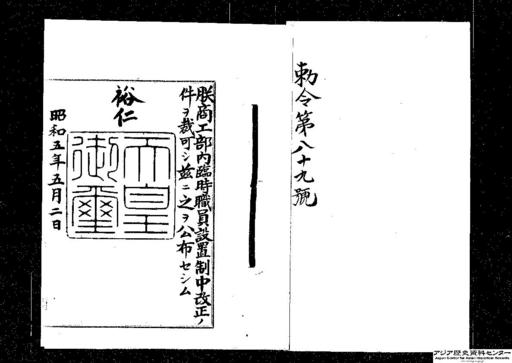 勅令第八十九號
朕商工部內臨時職員設置制中改正ノ
件ヲ裁可シ玆ニ之ヲ公布セシム
裕仁
天皇御璽
昭和五年五月二日
アジア歴史資料センター
Japan Center for Asian Historical Records